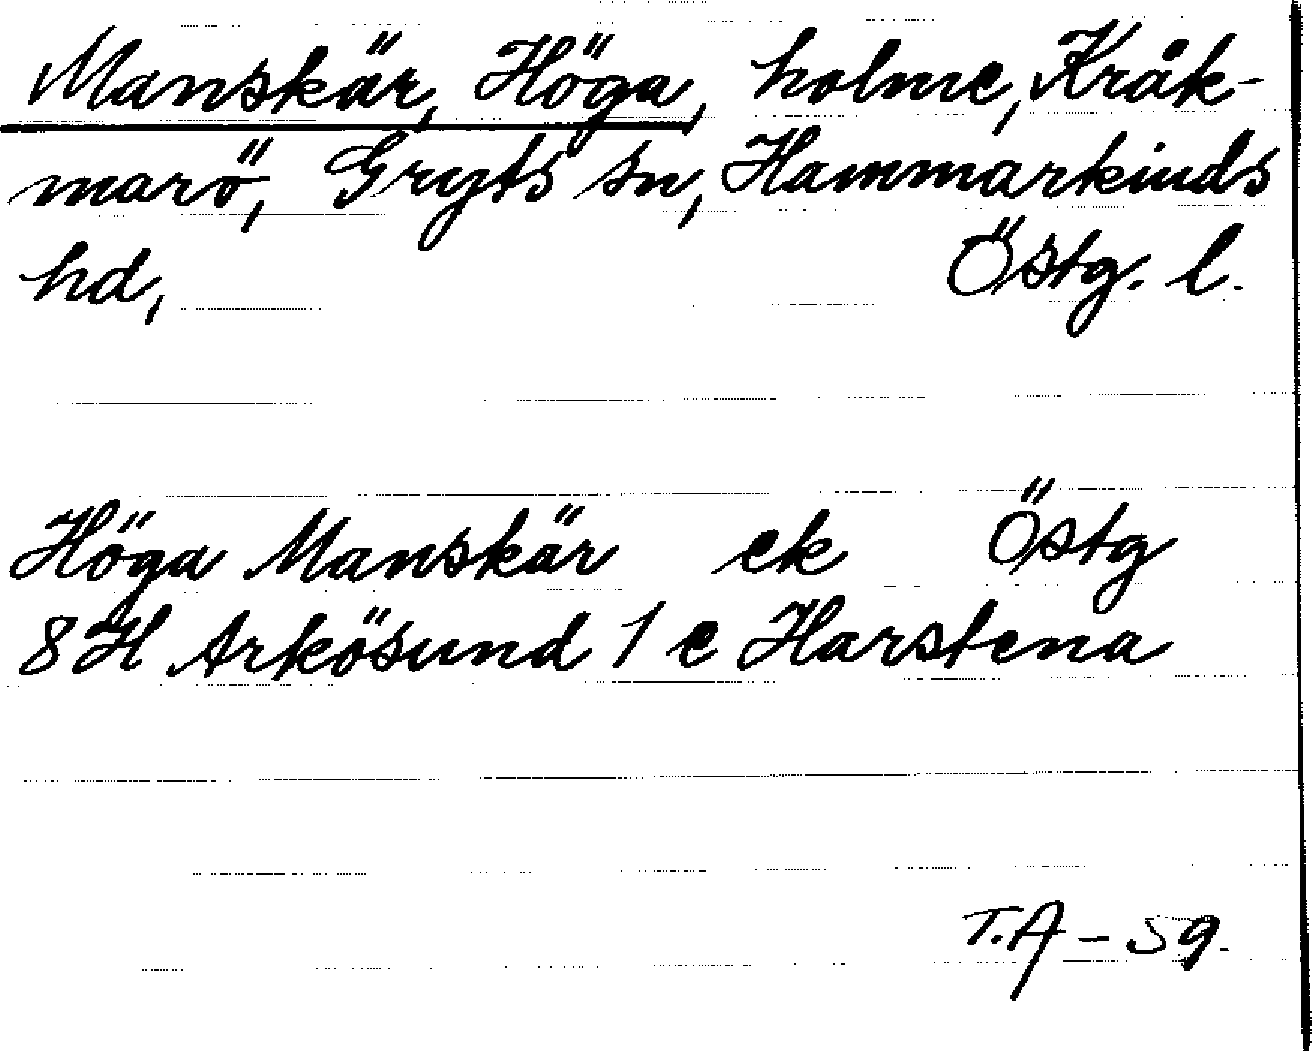 Manskär, Höga, holme, Kråk-
marö, Gryts sn, Hammarkinds
hd, Östg. l.
Höga Manskär ek Östg
8H Arkösund 1 c Harstena
T.A - 59.